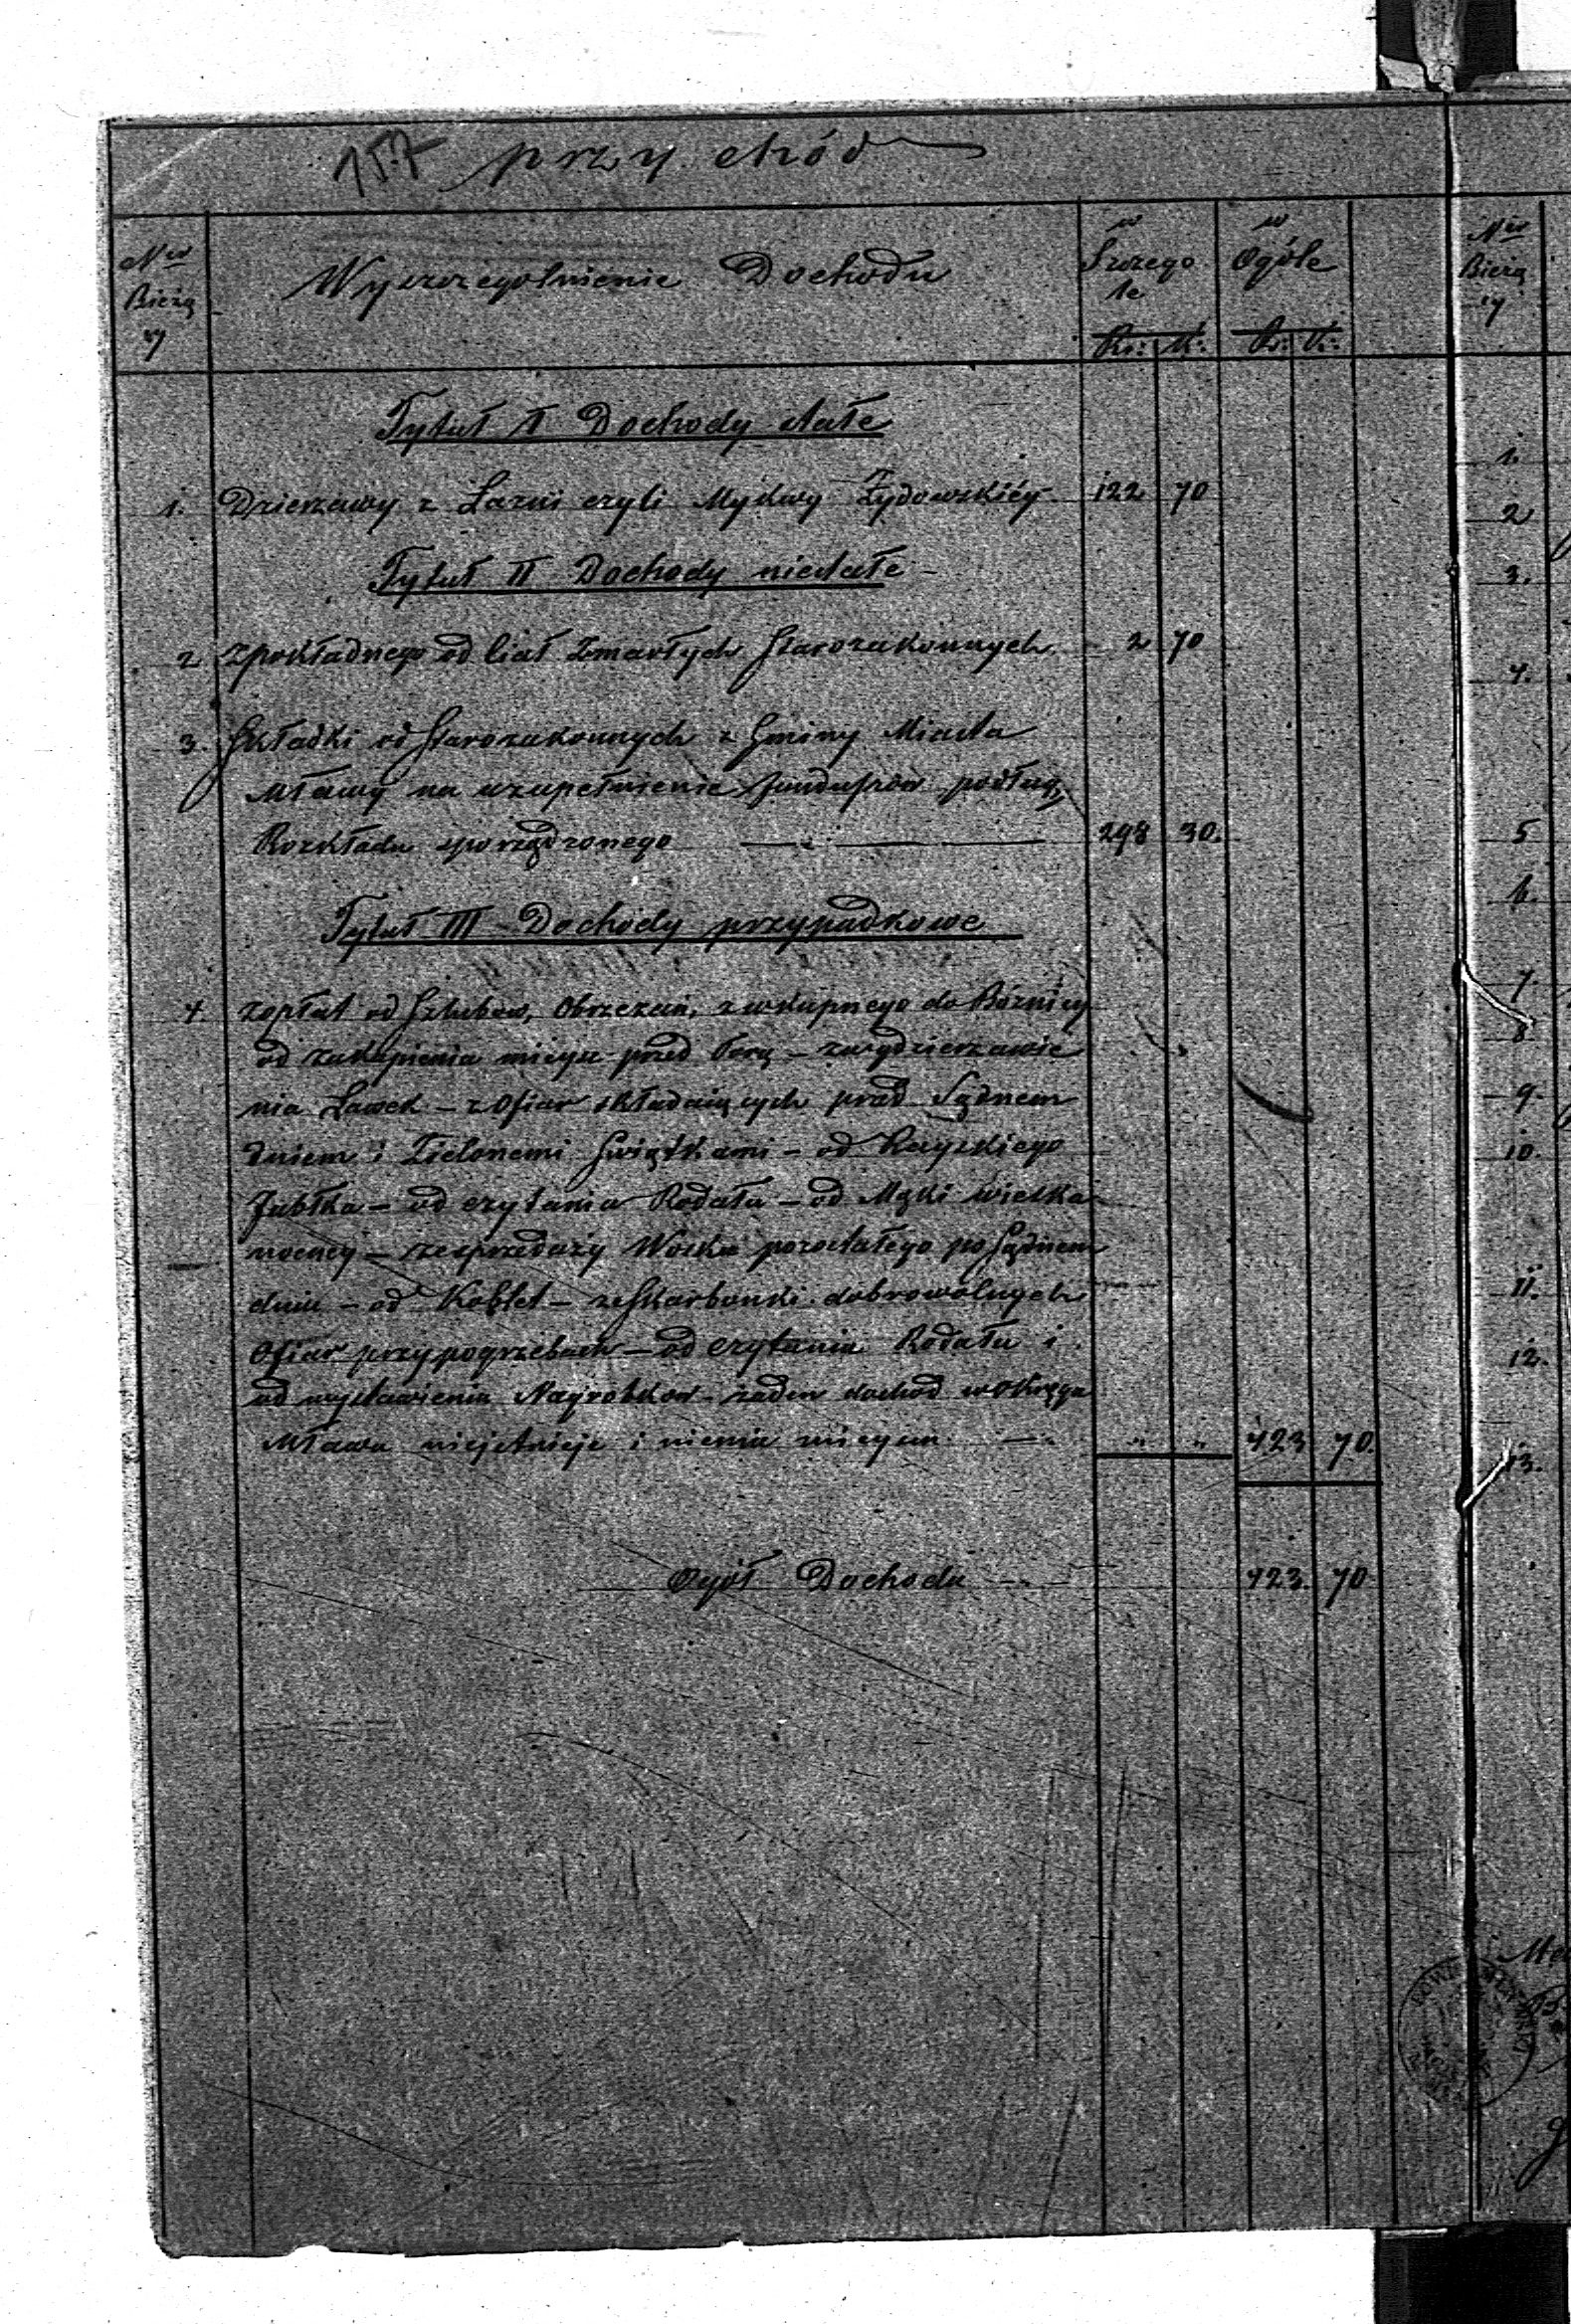 157 przychód
Nr Bieżący
Wyszczególnienie Dochodu
w Szczególe
Rs: K:
w Ogóle
Rs: K:
Tytuł I Dochody stałe
1. Dzierzawy z Łazni czyli Mykwy Żydowskiéy 122 70
Tytuł II Dochody niestałe
2 Z pokładnego od Ciał Zmarłych Starozakonnych 2 70
3. Składki od Starozakonnych z Gminy Miasta
Mławy na uzupełnienie funduszów podług
Rozkładu sporządzonego 298 30.
Tytuł III Dochody przypadkowe
4. z opłat od Szlubow, Obrzezań, z wstupnego do Bóżnicy
od zakupienia mieysc przed Torą – z wydzierzawie
nia Ławek – z Ofiar składaiących przed Sądnem
dniem i Zielonemi Swiątkami – od Rayskiego
Jabłka – od czytania Rodału – od Mąki wielka
nocney – ze sprzedaży Wosku pozostałego po Sądnem
dniu – od Kobiet – ze Skarbonki dobrowolnych
Ofiar przy pogrzebach – od czytania Rodału i
od wystawienia Nagrobkow – zaden dochod w Okręgu
Mława nieistnieje i niema mieysca " " 423 70.
Ogół Dochodu 423. 70
Nr Bieżący
1.
2
3.
4.
5
6.
7.
8
9.
10.
11.
12.
13.